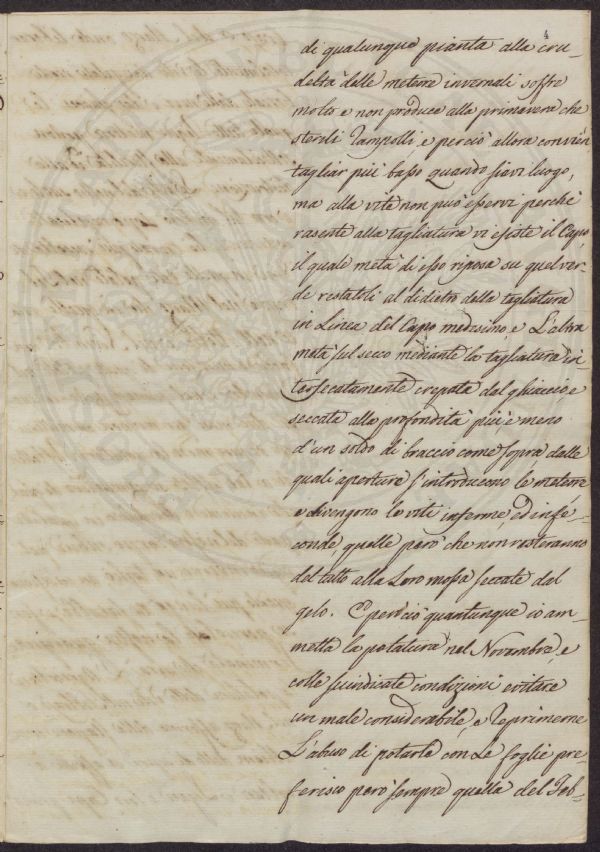 4
di qualunque pianta alla cru-
deltà delle meteore invernali soffre
molto e non produce alla primavera che
sterili rampolli, e perciò allora convien
tagliar più basso quando siavi luogo,
ma alla vite non può esservi perchè
rasente alla tagliatura vi esiste il Capo,
il quale metà di esso riposa su quel ver-
de restatoli al didietro della tagliatura
in Linea del Capo medesimo, e L'altra
metà sul secco mediante la tagliatura in-
tersecatamente crepata dal ghiaccio e
seccata alla profondità più e meno
d'un soldo di braccio come sopra dalle
quali aperture s'introducono le meteore
e divengono le viti inferme, ed infe-
conde, quelle però che non resteranno
del tutto alla Loro mossa seccate dal
gelo. E perciò quantunque io am-
metta la potatura nel Novembre, e
colle suindicate condizioni evitare
un male considerabile, e reprimerne
L'abuso di potarla con Le foglie pre-
ferisco però sempre quella del Feb-